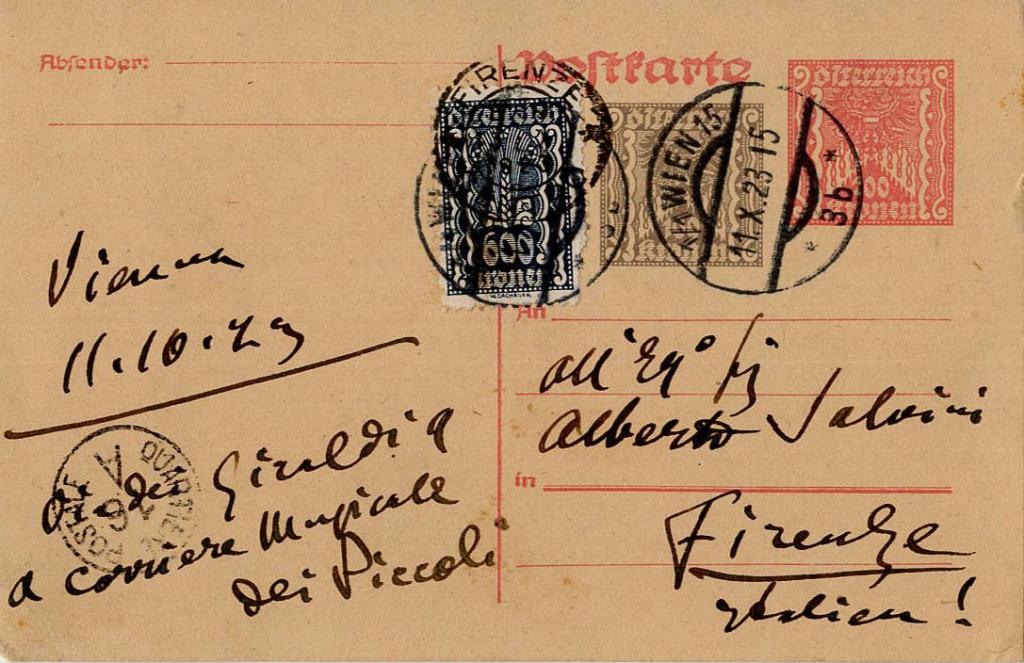 Absender:
Postkarte
FIRENZE
Österreich
600
Kronen
Österreich
Kronen
WIEN 15
11.X.23-15
* 3b *
Österreich
Kronen
Vienna
11.10.23
An
All' Eg°
Alberto Salvini
in
Firenze
Italien!
Giraldi
a corriere Musicale
dei Piccoli
A
26